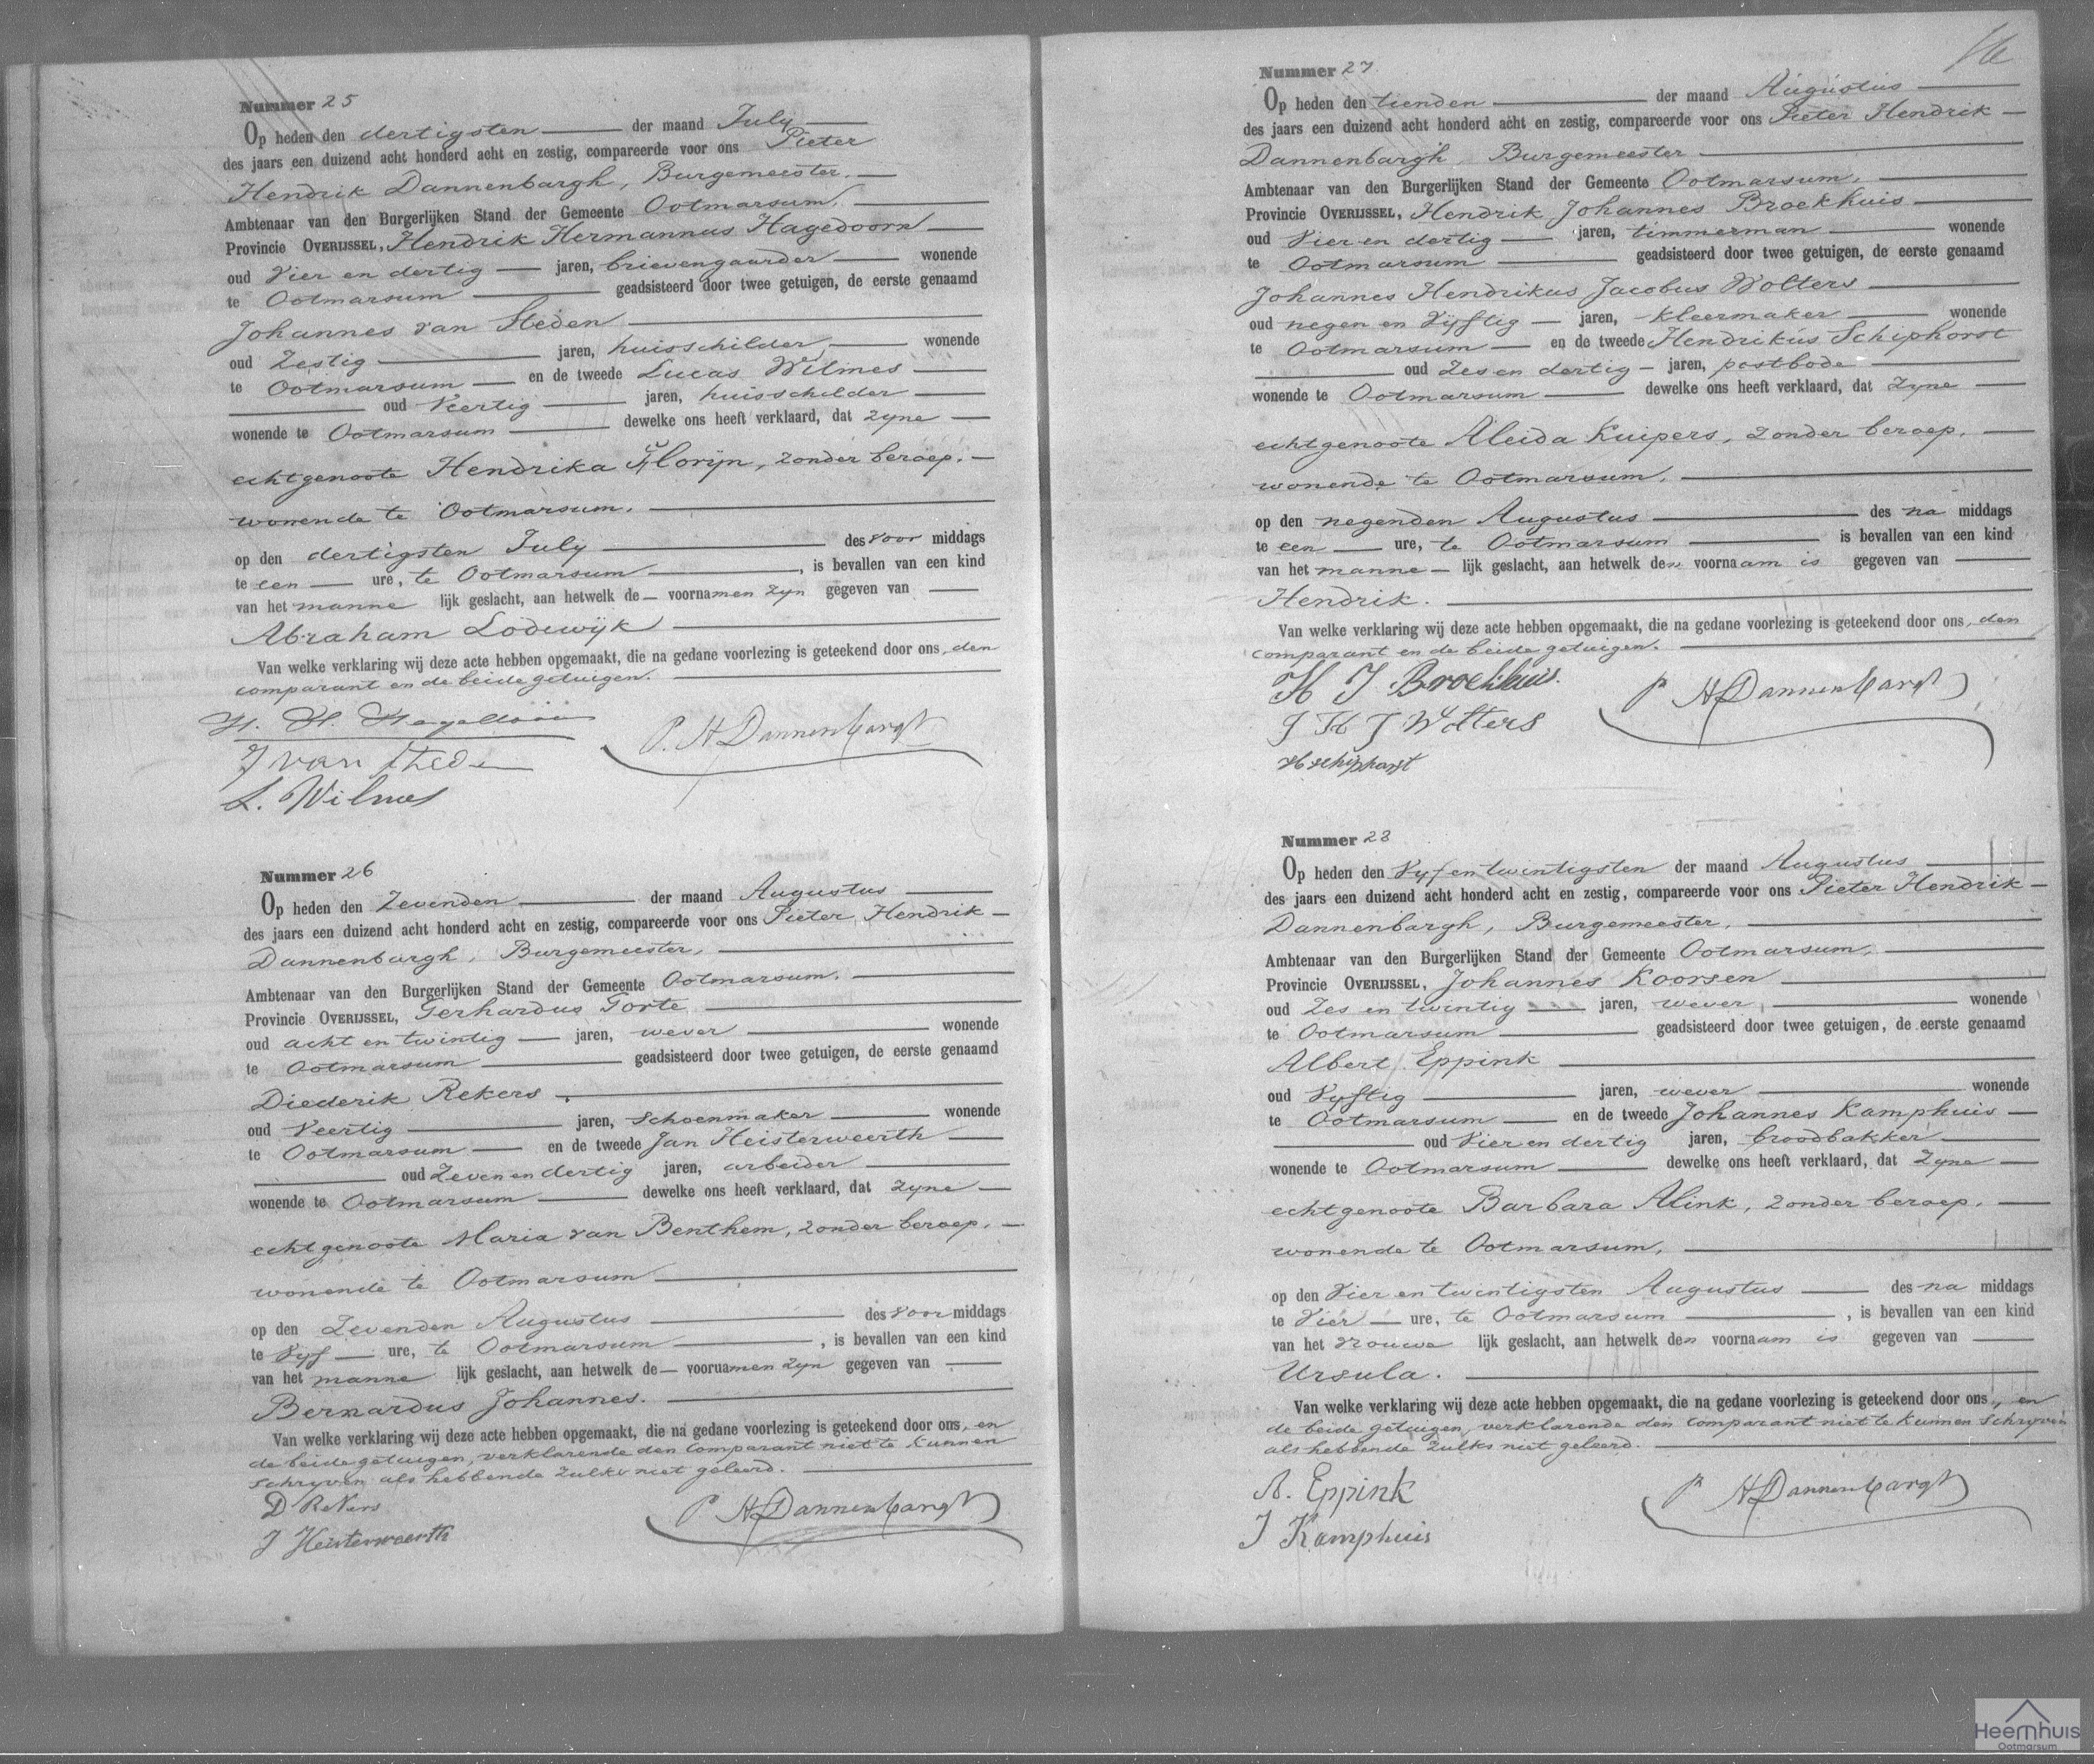 Nummer 25
Op heden den dertigsten der maand July
des jaars een duizend acht honderd acht en zestig, compareerde voor ons Pieter
Hendrik Dannenbargh, Burgemeester,
Ambtenaar van den Burgerlijken Stand der Gemeente Ootmarsum,
Provincie OVERIJSSEL, Hendrik Hermannus Hagedoorn
oud Vier en dertig jaren, brievengaarder wonende
te Ootmarsum geadsisteerd door twee getuigen, de eerste genaamd
Johannes van Steden
oud Zestig jaren, huisschilder, wonende
te Ootmarsum en de tweede Lucas Wilmes
oud Veertig jaren, huisschilder
wonende te Ootmarsum dewelke ons heeft verklaard, dat zyne
echtgenoote Hendrika Florijn, zonder beroep,
wonende te Ootmarsum,
op den dertigsten July des voor middags
te een ure, te Ootmarsum, is bevallen van een kind
van het manne lijk geslacht, aan hetwelk de voornamen zyn gegeven van
Abraham Lodewijk
Van welke verklaring wij deze acte hebben opgemaakt, die na gedane voorlezing is geteekend door ons, den
comparant en de beide getuigen.
H. H. Hagedoorn
J van Steden
P. H Dannenbargh
L. Wilmes
Nummer 26
Op heden den Zevenden der maand Augustus
des jaars een duizend acht honderd acht en zestig, compareerde voor ons Pieter Hendrik
Dannenbargh, Burgemeester,
Ambtenaar van den Burgerlijken Stand der Gemeente Ootmarsum,
Provincie OVERIJSSEL, Gerhardus Torte
oud acht en twintig jaren, wever wonende
te Ootmarsum geadsisteerd door twee getuigen, de eerste genaamd
Diederik Rekers
oud Veertig jaren, schoenmaker wonende
te Ootmarsum en de tweede Jan Heisterweerth
oud Zeven en dertig jaren, arbeider
wonende te Ootmarsum dewelke ons heeft verklaard, dat zyne
echtgenoote Maria van Benthem, zonder beroep,
wonende te Ootmarsum
op den Zevenden Augustus des voor middags
te Vyf ure, te Ootmarsum, is bevallen van een kind
van het manne lijk geslacht, aan hetwelk de voornamen zyn gegeven van
Bernardus Johannes.
Van welke verklaring wij deze acte hebben opgemaakt, die na gedane voorlezing is geteekend door ons, en
de beide getuigen, verklarende den comparant niet te kunnen
schryven als hebbende zulks niet geleerd.
D Rekers
P H Dannenbargh
J Heisterweerth
16
Nummer 27
Op heden den tienden der maand Augustus
des jaars een duizend acht honderd acht en zestig, compareerde voor ons Pieter Hendrik
Dannenbargh, Burgemeester
Ambtenaar van den Burgerlijken Stand der Gemeente Ootmarsum,
Provincie OVERIJSSEL, Hendrik Johannes Broekhuis
oud Vier en dertig jaren, timmerman wonende
te Ootmarsum geadsisteerd door twee getuigen, de eerste genaamd
Johannes Hendrikus Jacobus Wolters
oud negen en Vyftig jaren, kleermaker wonende
te Ootmarsum en de tweede Hendrikus Schiphorst
oud Zes en dertig jaren, postbode
wonende te Ootmarsum dewelke ons heeft verklaard, dat zyne
echtgenoote Aleida Kuipers, zonder beroep,
wonende te Ootmarsum,
op den negenden Augustus des na middags
te een ure, te Ootmarsum is bevallen van een kind
van het manne lijk geslacht, aan hetwelk den voornaam is gegeven van
Hendrik.
Van welke verklaring wij deze acte hebben opgemaakt, die na gedane voorlezing is geteekend door ons, den
comparant en de beide getuigen.
H J Broekhuis.
P H Dannenbargh
J H J Wolters
H Schiphorst
Nummer 28
Op heden den Vyf en twintigsten der maand Augustus
des jaars een duizend acht honderd acht en zestig, compareerde voor ons Pieter Hendrik
Dannenbargh, Burgemeester,
Ambtenaar van den Burgerlijken Stand der Gemeente Ootmarsum,
Provincie OVERIJSSEL, Johannes Koorsen
oud Zes en twintig jaren, wever, wonende
te Ootmarsum geadsisteerd door twee getuigen, de eerste genaamd
Albert Eppink
oud Vyftig jaren, wever wonende
te Ootmarsum en de tweede Johannes Kamphuis
oud Vier en dertig jaren, broodbakker
wonende te Ootmarsum dewelke ons heeft verklaard, dat zyne
echtgenoote Barbara Alink, zonder beroep,
wonende te Ootmarsum,
op den Vier en twintigsten Augustus des na middags
te Vier ure, te Ootmarsum, is bevallen van een kind
van het vrouwe lijk geslacht, aan hetwelk den voornaam is gegeven van
Ursula.
Van welke verklaring wij deze acte hebben opgemaakt, die na gedane voorlezing is geteekend door ons, en
de beide getuigen, verklarende den comparant niet te kunnen schryven
als hebbende zulks niet geleerd.
A. Eppink
P H Dannenbargh
J Kamphuis
Heemhuis
Ootmarsum